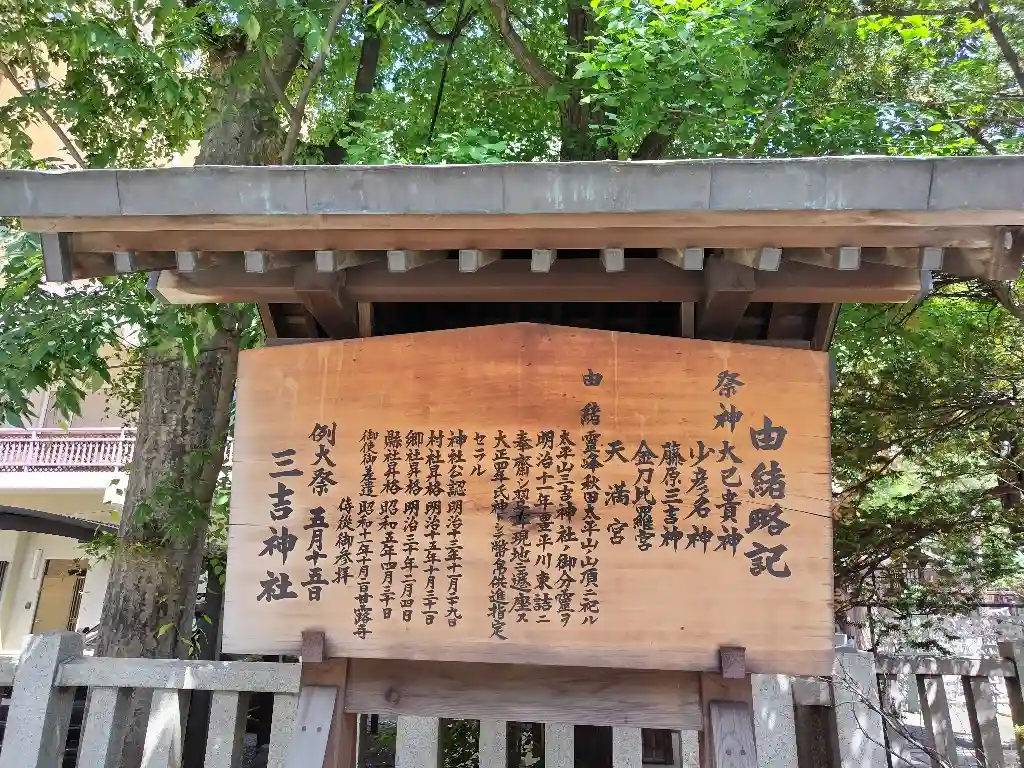 由緒略記
祭神 大己貴神
少彦名神
藤原三吉神
金刀比羅宮
天満宮
由緒 霊峰秋田太平山山頂ニ祀ル
太平山三吉神社ノ御分霊ヲ
明治十一年豊平川東詰ニ
奉斎シ翌年現地ニ遷座ス
大正四年式神シ幣帛供進指定
セラル
神社公認 明治十三年十一月二十九日
村社昇格 明治十五年十月三十一日
郷社昇格 明治三十年二月四日
縣社昇格 昭和五年四月三十日
御使御差遣 昭和十一年十月二日
侍従御参拝
例大祭 五月十五日
三吉神社